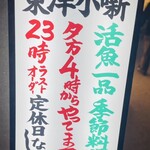 東洋小噺
活魚一品 季節料
夕方4時からやってま
23時ラストオーダー
定休日なし